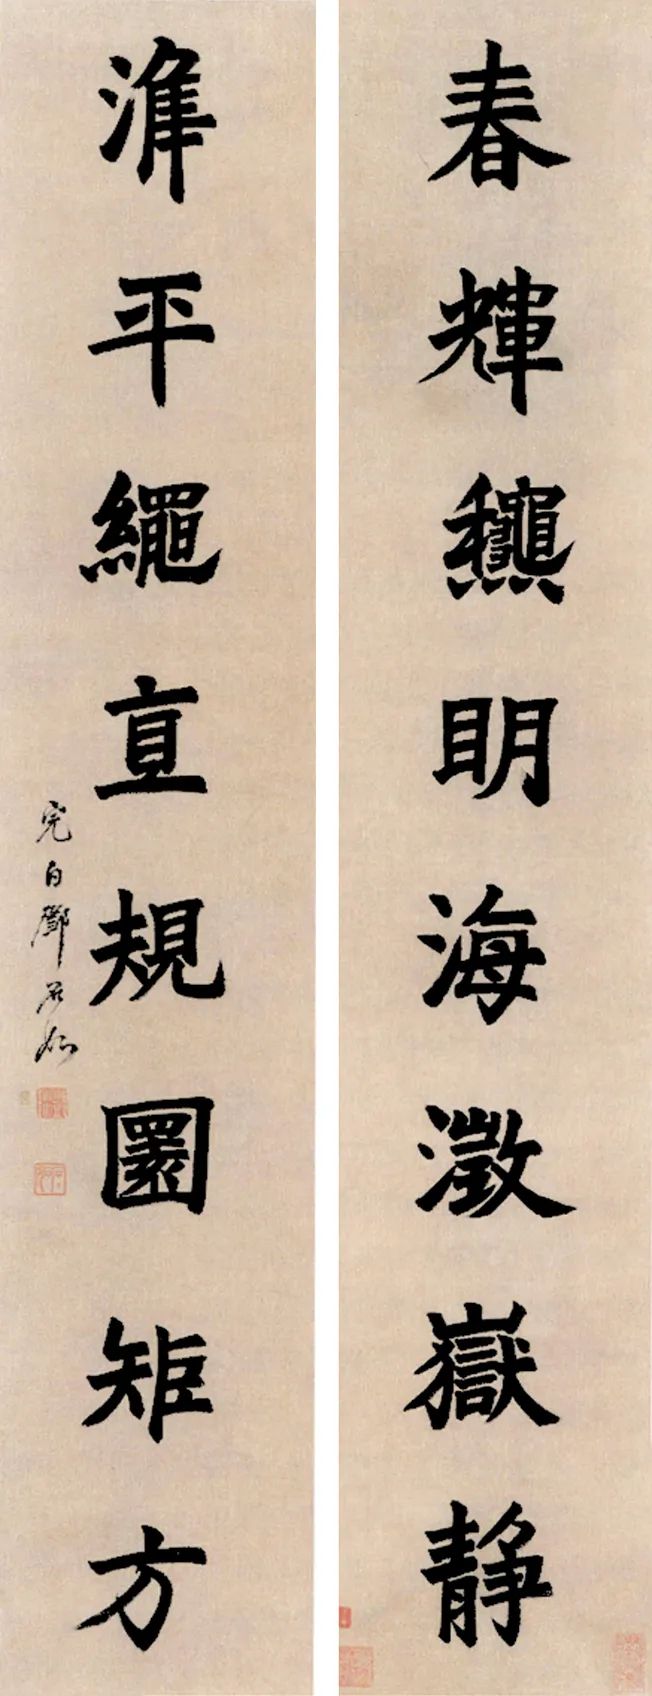 春輝𪛁明海澂嶽静
準平繩直規圜矩方
完白鄧石如